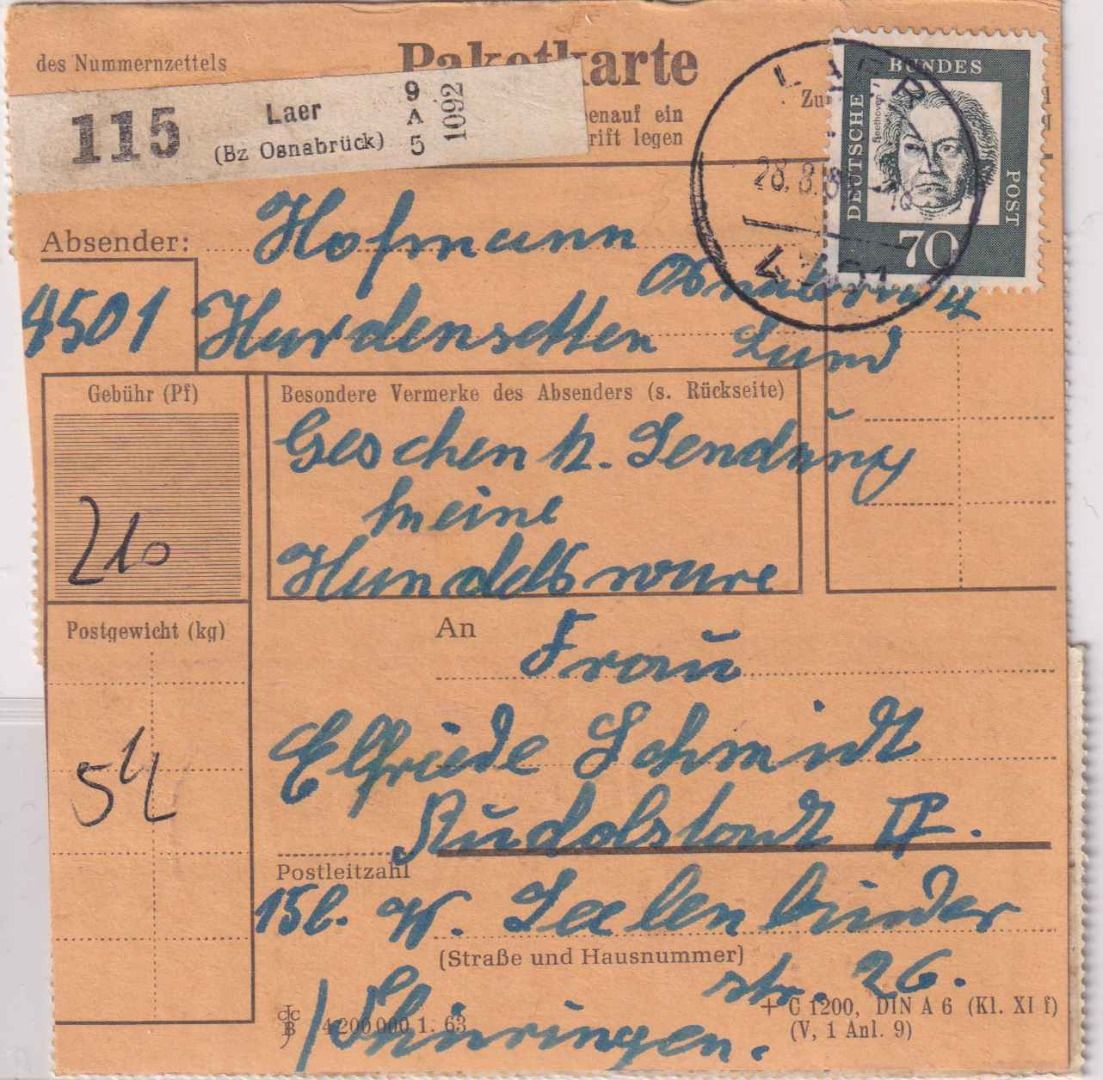 des Nummernzettels
Paketkarte
115
Laer
(Bz Osnabrück)
9
A
5
1092
enauf ein
rift legen
Zu
LAER
28.8.
BUNDES
DEUTSCHE
POST
Beethoven
70
Absender:
Hofmann
4501 Hardensetten
Land
Gebühr (Pf)
210
Besondere Vermerke des Absenders (s. Rückseite)
Geschenk. Sendung
keine
Handelsware
Postgewicht (kg)
An
Frau
Elfriede Schmidt
Rudolstadt II.
Postleitzahl
15b. W. Seelenbinder
(Straße und Hausnummer)
str. 26.
/Thüringen.
4200000 1. 63
+ C 1200, DIN A 6 (Kl. XI f)
(V, 1 Anl. 9)